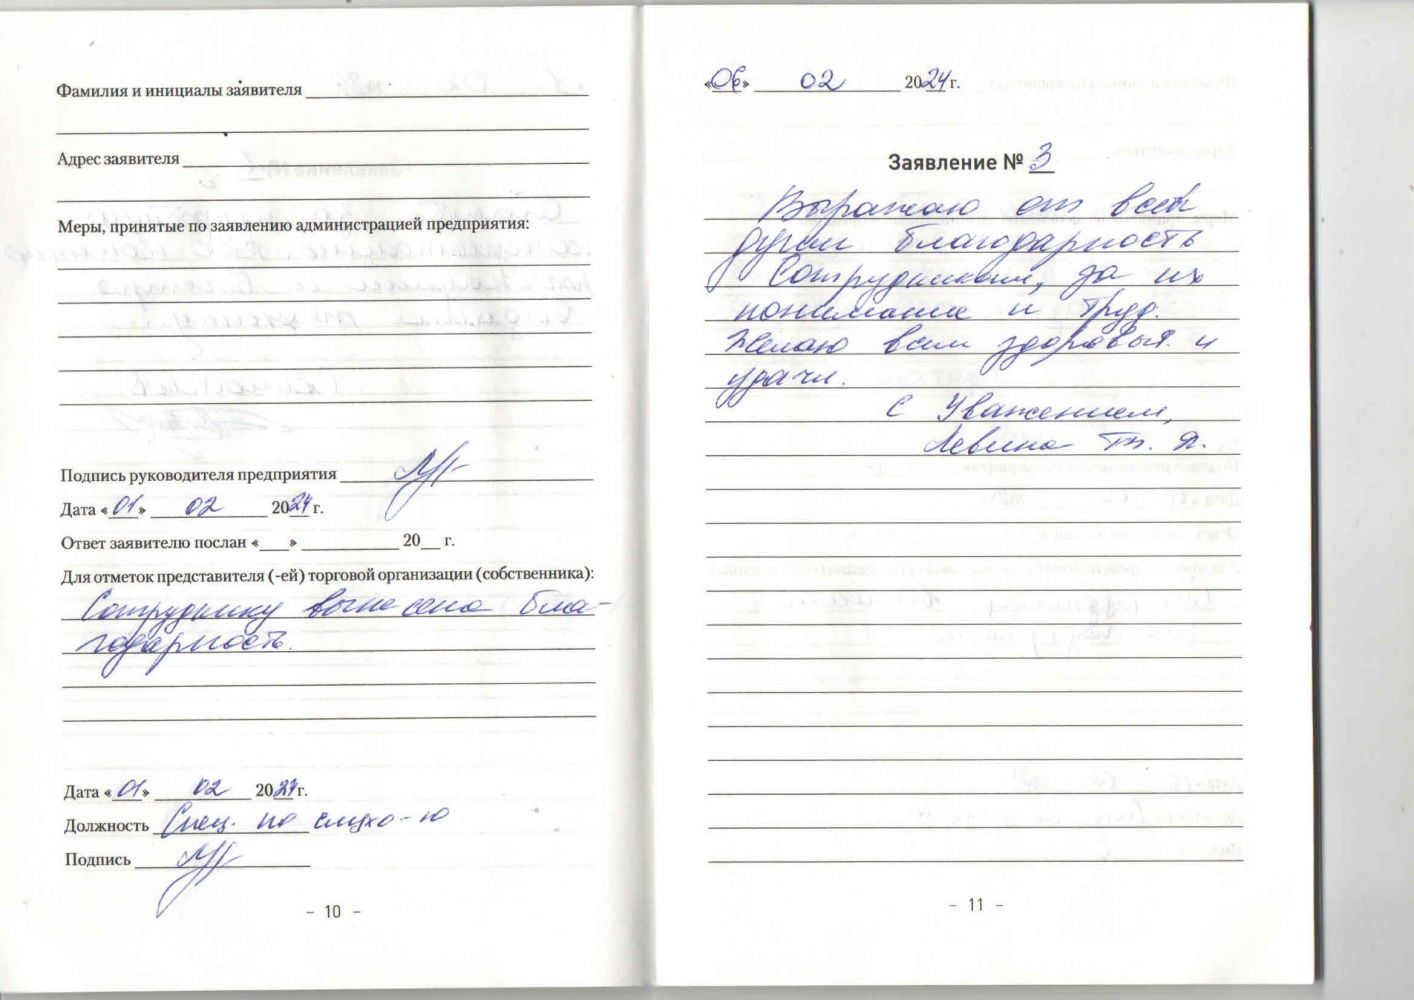 Фамилия и инициалы заявителя
Адрес заявителя
Меры, принятые по заявлению администрацией предприятия:
Подпись руководителя предприятия
Дата «01» 02 2024 г.
Ответ заявителю послан «___» ___ 20__ г.
Для отметок представителя (-ей) торговой организации (собственника):
Сотруднику вынесена бла-
годарность.
Дата «01» 02 2024 г.
Должность Спец. по слухо-ю
Подпись
- 10 -
«06» 02 2024 г.
Заявление № 3
Выражаю от всей
души благодарность
Сотрудникам, за их
понимание и труд.
Желаю всем здоровья и
удачи.
С Уважением,
Левина Т. Я.
- 11 -